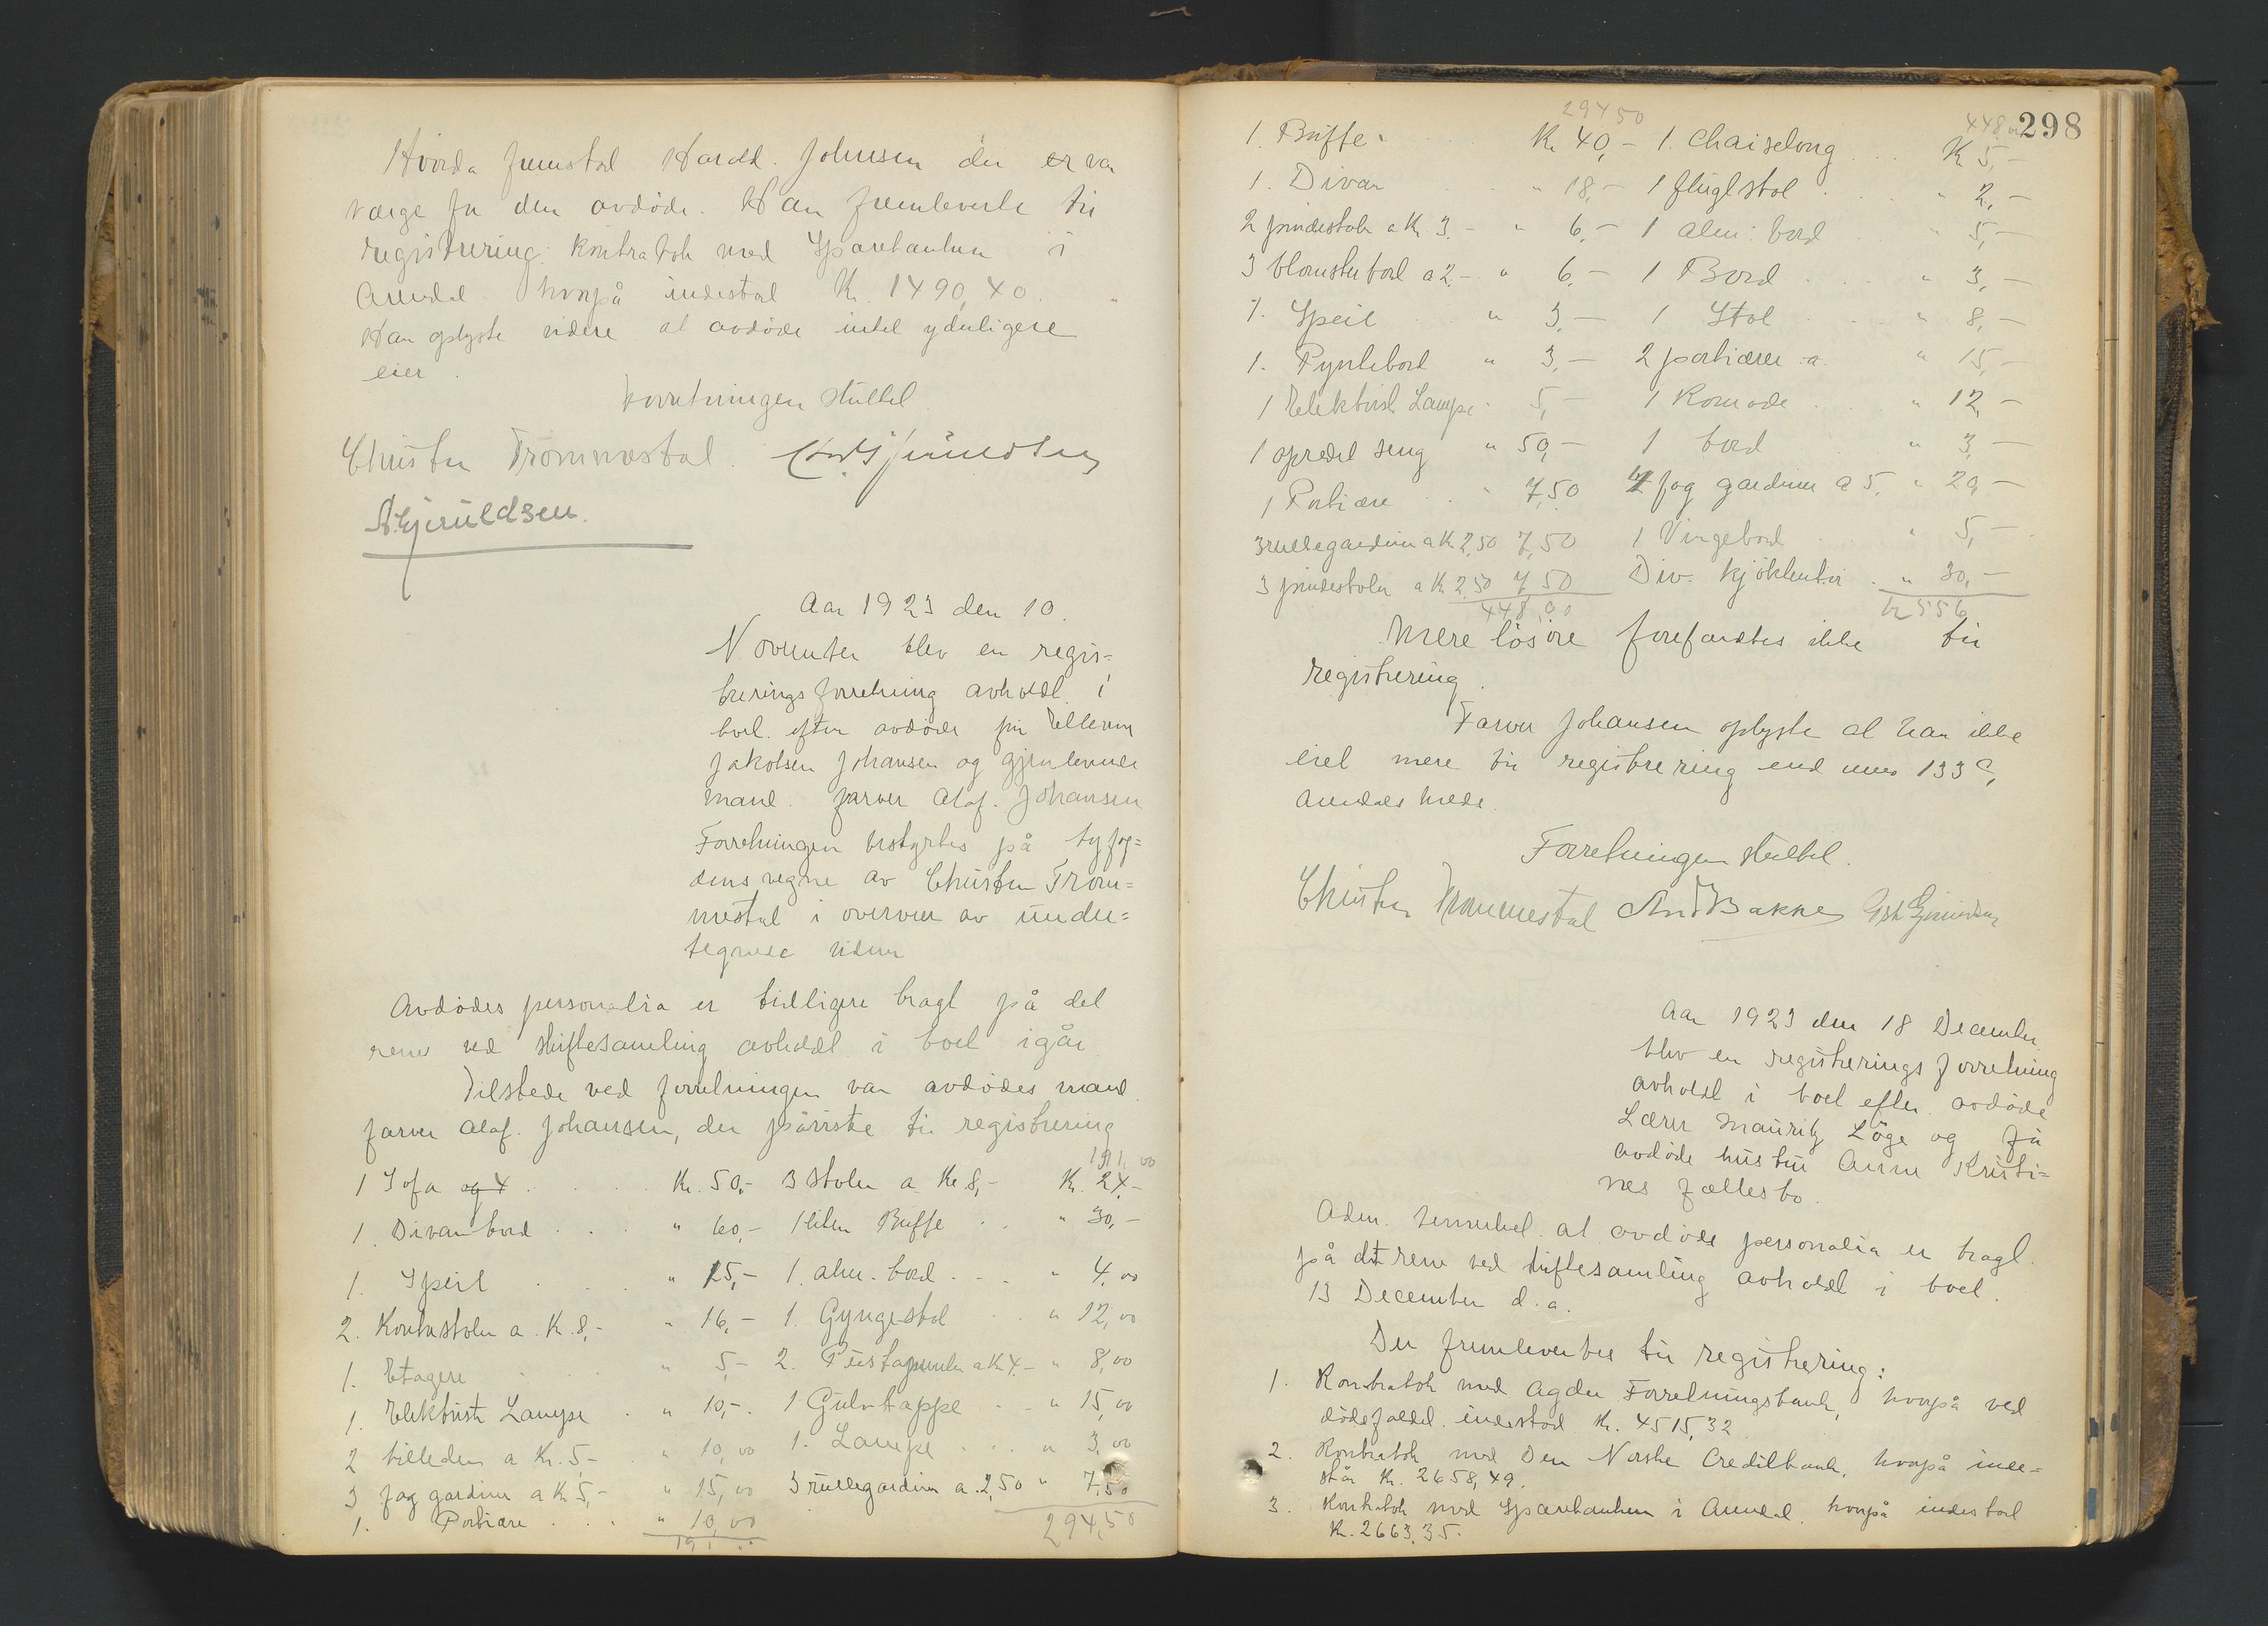 Hvorda fremstod Harald Johnsen der er var
værge for den avdøde. Han fremleverte til
registrering: kontrabok med Sparebanken i
Arendal hvorpå indestod Kr. 1490,40.
Han oplyste videre at avdøde intet yderligere
eier.
Forretningen sluttet
Christen Trommestad.
A. Gjeruldsen.
Aar 1923 den 10.
November blev en regis-
treringsforretning avholdt i
boet efter avdøde fru Ellevine
Jakobsen Johansen og gjenlevende
mand farver Olaf Johansen
Forretningen bestyrtes på byfog-
dens vegne av Christen Trom-
mestad i overvær av under-
tegnede vidner
Avdødes personalia er tidligere bragt på det
rene ved skiftesamling avholdt i boet igår
Tilstede ved forretningen var avdødes mand
farver Olaf Johansen, der påviste til registrering
191,00
1 Sofa og 4 . . . Kr. 50,- 3 stoler a Kr 8,- Kr. 24,-
1. Divanbord . . " 60,- 1 liten Buffe . . " 30,-
1. Speil . . . " 15,- 1. alm. bord . . . " 4,00
2. Kontustoler a. Kr. 8,- " 16,- 1. Gyngestol . . " 12,00
1. Etagere . . . " 5,- 2. Piedestaler a Kr 4.- " 8,00
1. Elektrisk Lampe . " 10,- 1 Gulvtæppe . . " 15,00
2 billeder a Kr. 5,- . " 10,00 1. Lampe . . . " 3,00
3 fag gardiner a Kr 5,- " 15,00 3 rullegardiner a. 2,50 " 7,50
1. Portiære . . . " 10,00 294,50
191
298
294 50 448,00
1. Buffe . . Kr 40,- 1. Chaiselong . . . Kr 5,-
1. Divan . . " 18,- 1 fluglstol . . . " 2,-
2 pindestoler a Kr. 3.- " 6,- 1 alm. bord . . " 5,-
3 blomsterbord a 2.- " 6,- 1 Bord . . . " 3,-
1. Speil . . " 3,- 1 Stol . . . " 8,-
1. Pyntebord " 3,- 2 portiærer a. " 15,-
1 Elektrisk Lampe " 5,- 1 Komode . . . " 12,-
1 opredd seng " 50,- 1 bord . . " 3,-
1 Portiære . . " 7,50 4 fag gardiner a 5. " 20,-
3 rullegardiner a Kr 2,50 7,50 1 Vingebord . . " 5,-
3 pindestoler a Kr 2,50 7 50 Div. kjøkkentøi . " 30,-
448,00 Kr 556
Mere løsøre forefandtes ikke til
registrering.
Farver Johansen oplyste at han ikke
eiet mere til registrering end mno 133 c,
Arendals brede.
Forretningen sluttet.
Christen Trommestad And Bakke
Aar 1923 den 18 December
blev en registreringsforretning
avholdt i boet efter avdøde
Lærer Mauritz Løge og før
avdøde hustru Anne Kristi-
nes fællesbo.
Adm. bemerket at avdøde personalia er bragt
på det rene ved skiftesamling avholdt i boet
13 December d. a.
Der fremlevertes til registrering:
1. Kontrabok med Agder Forretningsbank, hvorpå ved
dødsfaldet indestod Kr. 4515,32
2. Kontrabok med Den Norske Creditbank, hvorpå inde-
står Kr. 2658,49.
3. Kontrabok med Sparebanken i Arendal hvorpå indestod
Kr. 2663,35.